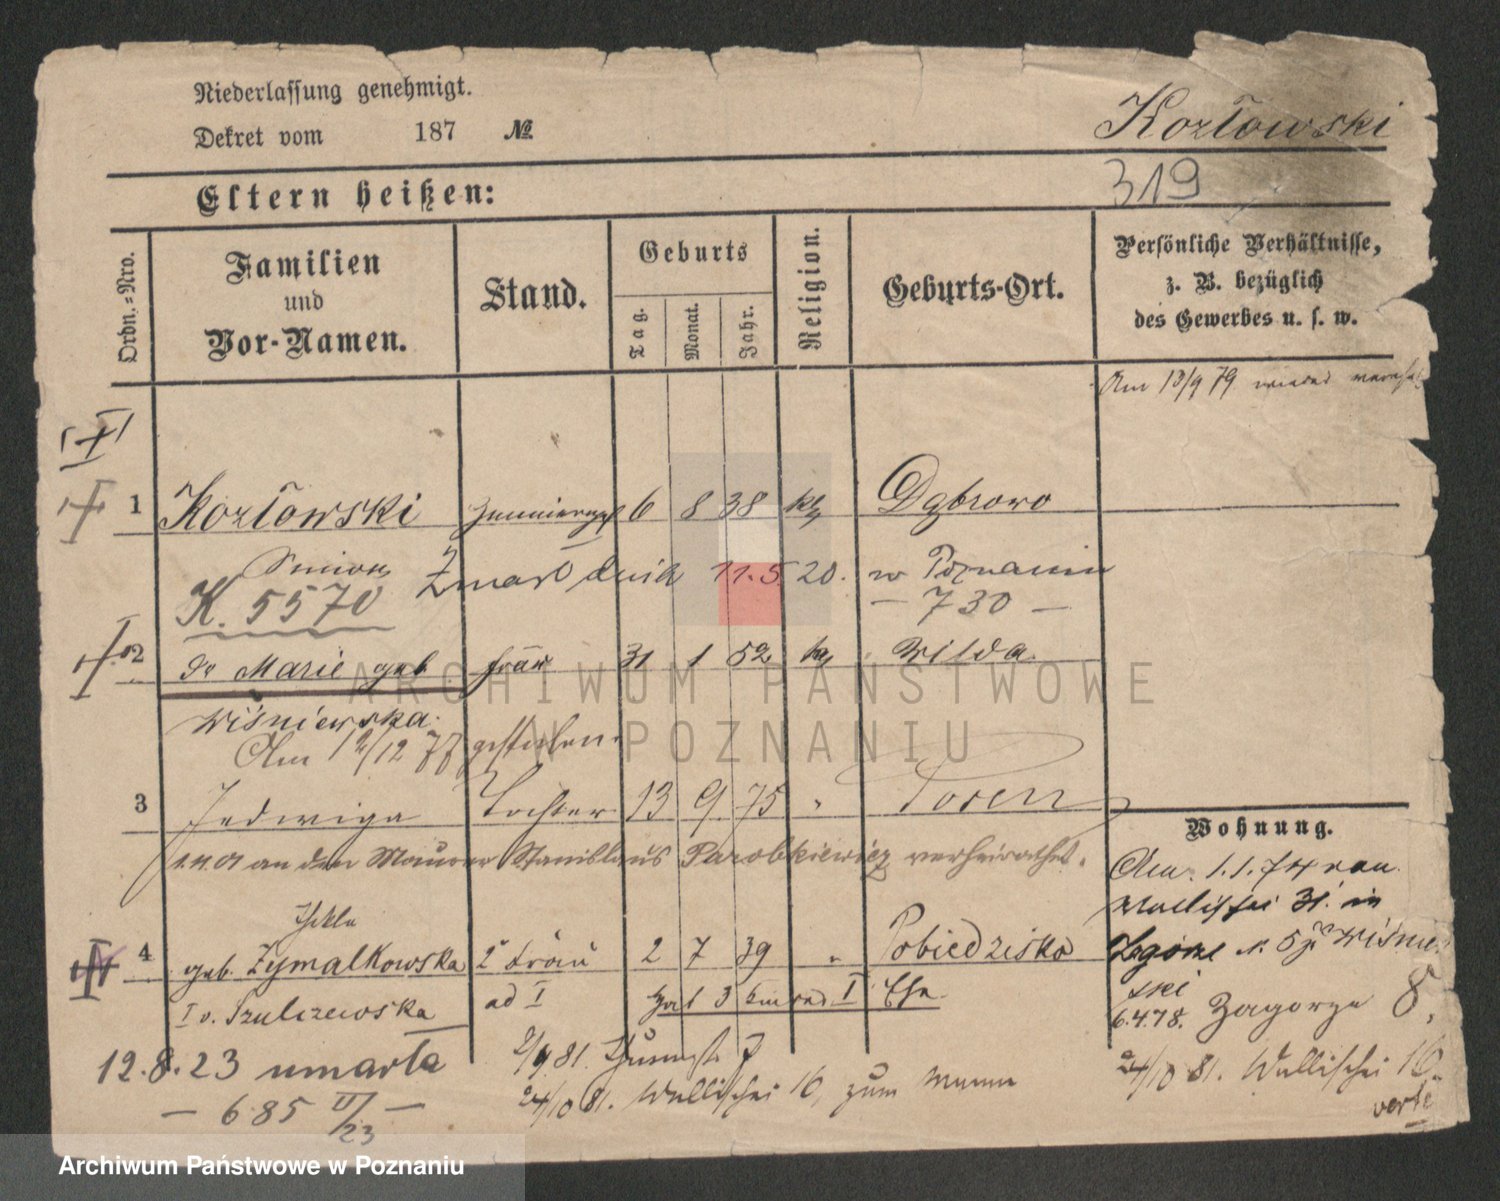 Niederlassung genehmigt.
Dekret vom 187 №
Kozłowski
319
Eltern heißen:
Ordn.-Nro.
Familien
und
Vor-Namen.
Stand.
Geburts
Tag.
Monat.
Jahr.
Religion.
Geburts-Ort.
Persönliche Verhältnisse,
z. B. bezüglich
des Gewerbes u. s. w.
Am 13/9 79 wieder
1 Kozłowski 6 8 38 kth Dąbrowo
Zmarł dnia 11.5.20. w Poznaniu
K. 5570
— 730 —
2 Marie geb. Frau 31 1 52 Wilda.
Wiśniewska.
Am 12/12 77 gestorben.
3 Jedwiga Tochter 13 9 75 " Posen
an den Maurer Stanislaus Parobkiewicz verheirathet.
Wohnung.
Am 1.1.74 von
Wallischei 31. in
Zagórze
Wiśniew
ski
6.4.78. Zagorze 8,
Thekla
4 geb. Zymalkowska 2 Frau 2 7 39 " Pobiedziska
I v. Szulczewska ad I hat 3 I Ehe.
12.8.23 umarła
— 685 II/23 —
2/4 81.
24/10 81. Wallischei 16, zum
24/10 81. Wallischei 16.
verte
ARCHIWUM PAŃSTWOWE
W POZNANIU
Archiwum Państwowe w Poznaniu